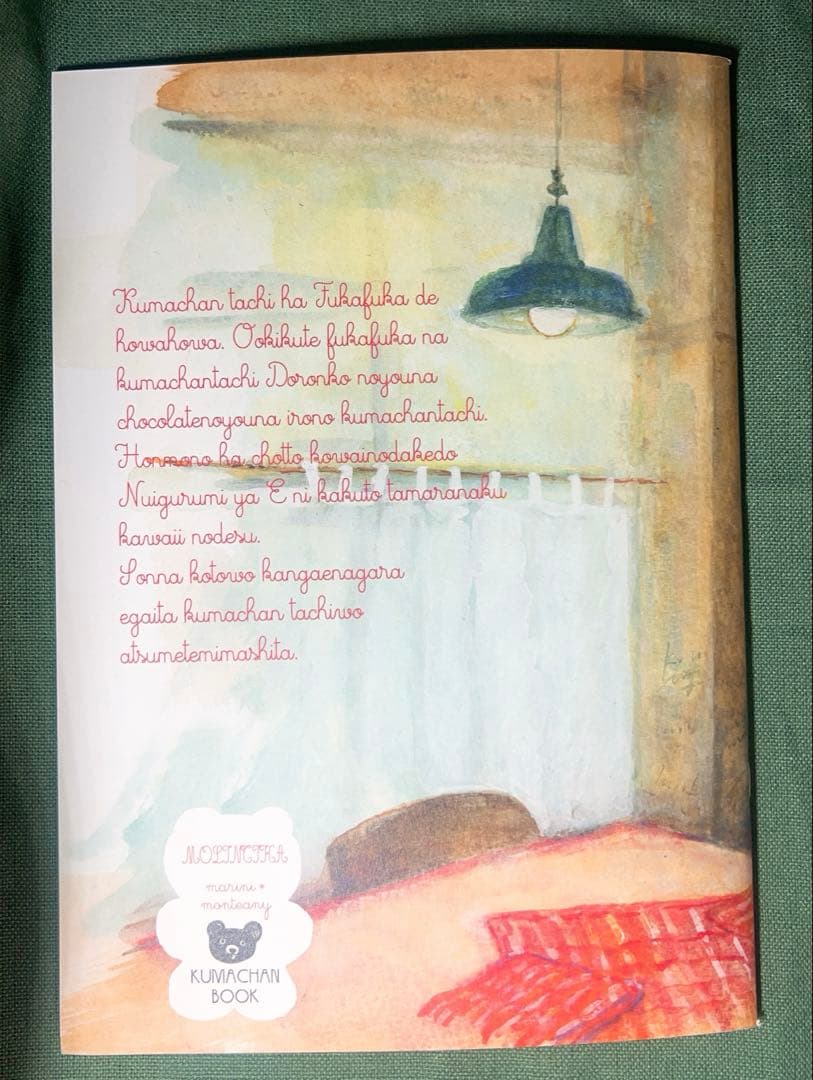 Kumachan tachi ha Fukafuka de
howahowa. Ookikute fukafuka na
kumachantachi Doronko noyouna
chocolatenoyouna irono kumachantachi.
Honmono ha chotto kowainodakedo
Nuigurumi ya E ni kakuto tamaranaku
kawaii nodesu.
Sonna kotowo kangaenagara
egaita kumachan tachiwo
atsumetemimashita.
marini *
monteany
KUMACHAN
BOOK